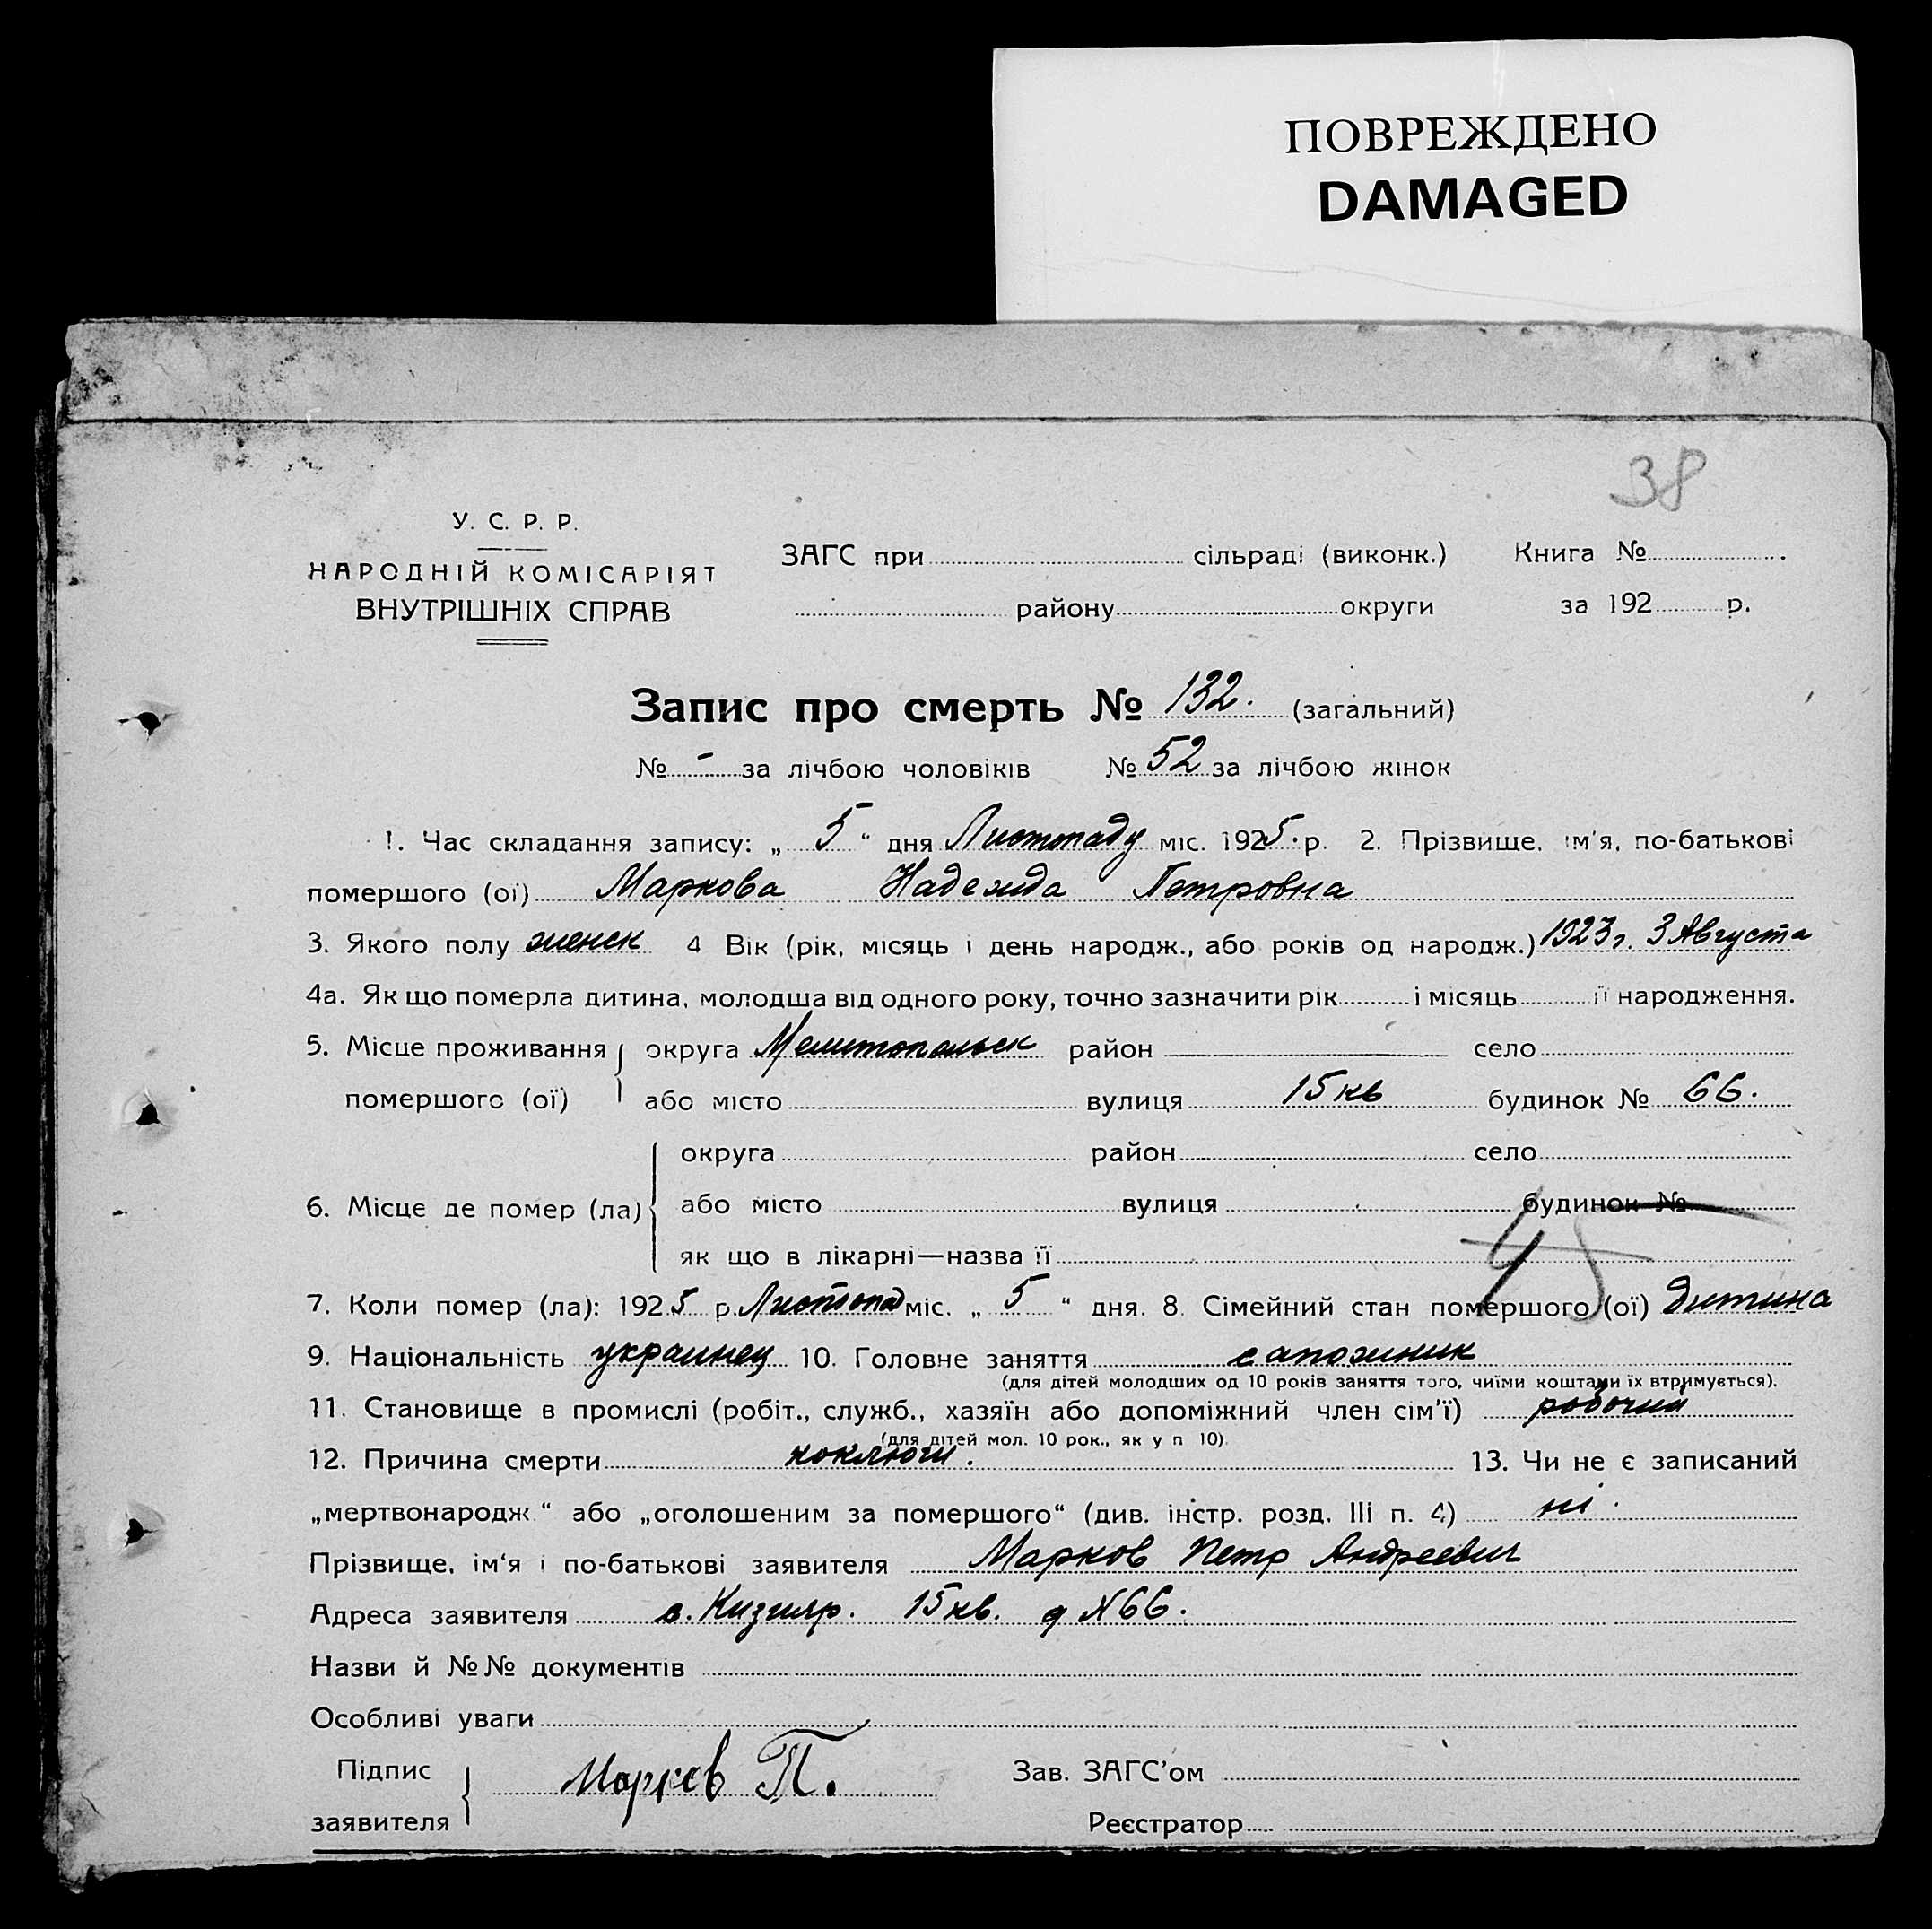 ПОВРЕЖДЕНО
DAMAGED
38
У. С. Р. Р.
НАРОДНІЙ КОМІСАРІЯТ
ВНУТРІШНІХ СПРАВ
ЗАГС при сільраді (виконк.) Книга №
району округи за 192 р.
Запис про смерть № 132. (загальний)
№ - за лічбою чоловіків № 52 за лічбою жінок
1. Час складання запису: „ 5 “ дня Листопаду міс. 1925. р. 2. Прізвище, ім'я, по-батькові
помершого (ої) Маркова Надежда Петровна
3. Якого полу женск 4 Вік (рік, місяць і день народж., або років од народж.) 1923 г. 3 Августа
4а. Як що померла дитина, молодша від одного року, точно зазначити рік і місяць її народження.
5. Місце проживання округа Мелитопольск район село
помершого (ої) або місто вулиця 15 кв будинок № 66.
округа район село
6. Місце де помер (ла) або місто вулиця будинок №
як що в лікарні—назва її
45
7. Коли помер (ла): 1925 р. Листопад міс. „ 5 “ дня. 8. Сімейний стан помершого (ої) Дитина
9. Національність украинец 10. Головне заняття сапожник
(для дітей молодших од 10 років заняття того, чиїми коштами їх втримується).
11. Становище в промислі (робіт., служб., хазяїн або допоміжний член сім'ї) робочий
(для дітей мол. 10 рок., як у п 10).
12. Причина смерти коклюш. 13. Чи не є записаний
„мертвонародж.“ або „оголошеним за помершого“ (див. інстр. розд. III п. 4) ні.
Прізвище, ім‘я і по-батькові заявителя Марков Петр Андреевич
Адреса заявителя с. Кизияр. 15 кв. д N 66.
Назви й №№ документів
Особливі уваги
Підпис заявителя Марков П. Зав. ЗАГС'ом
Реєстратор